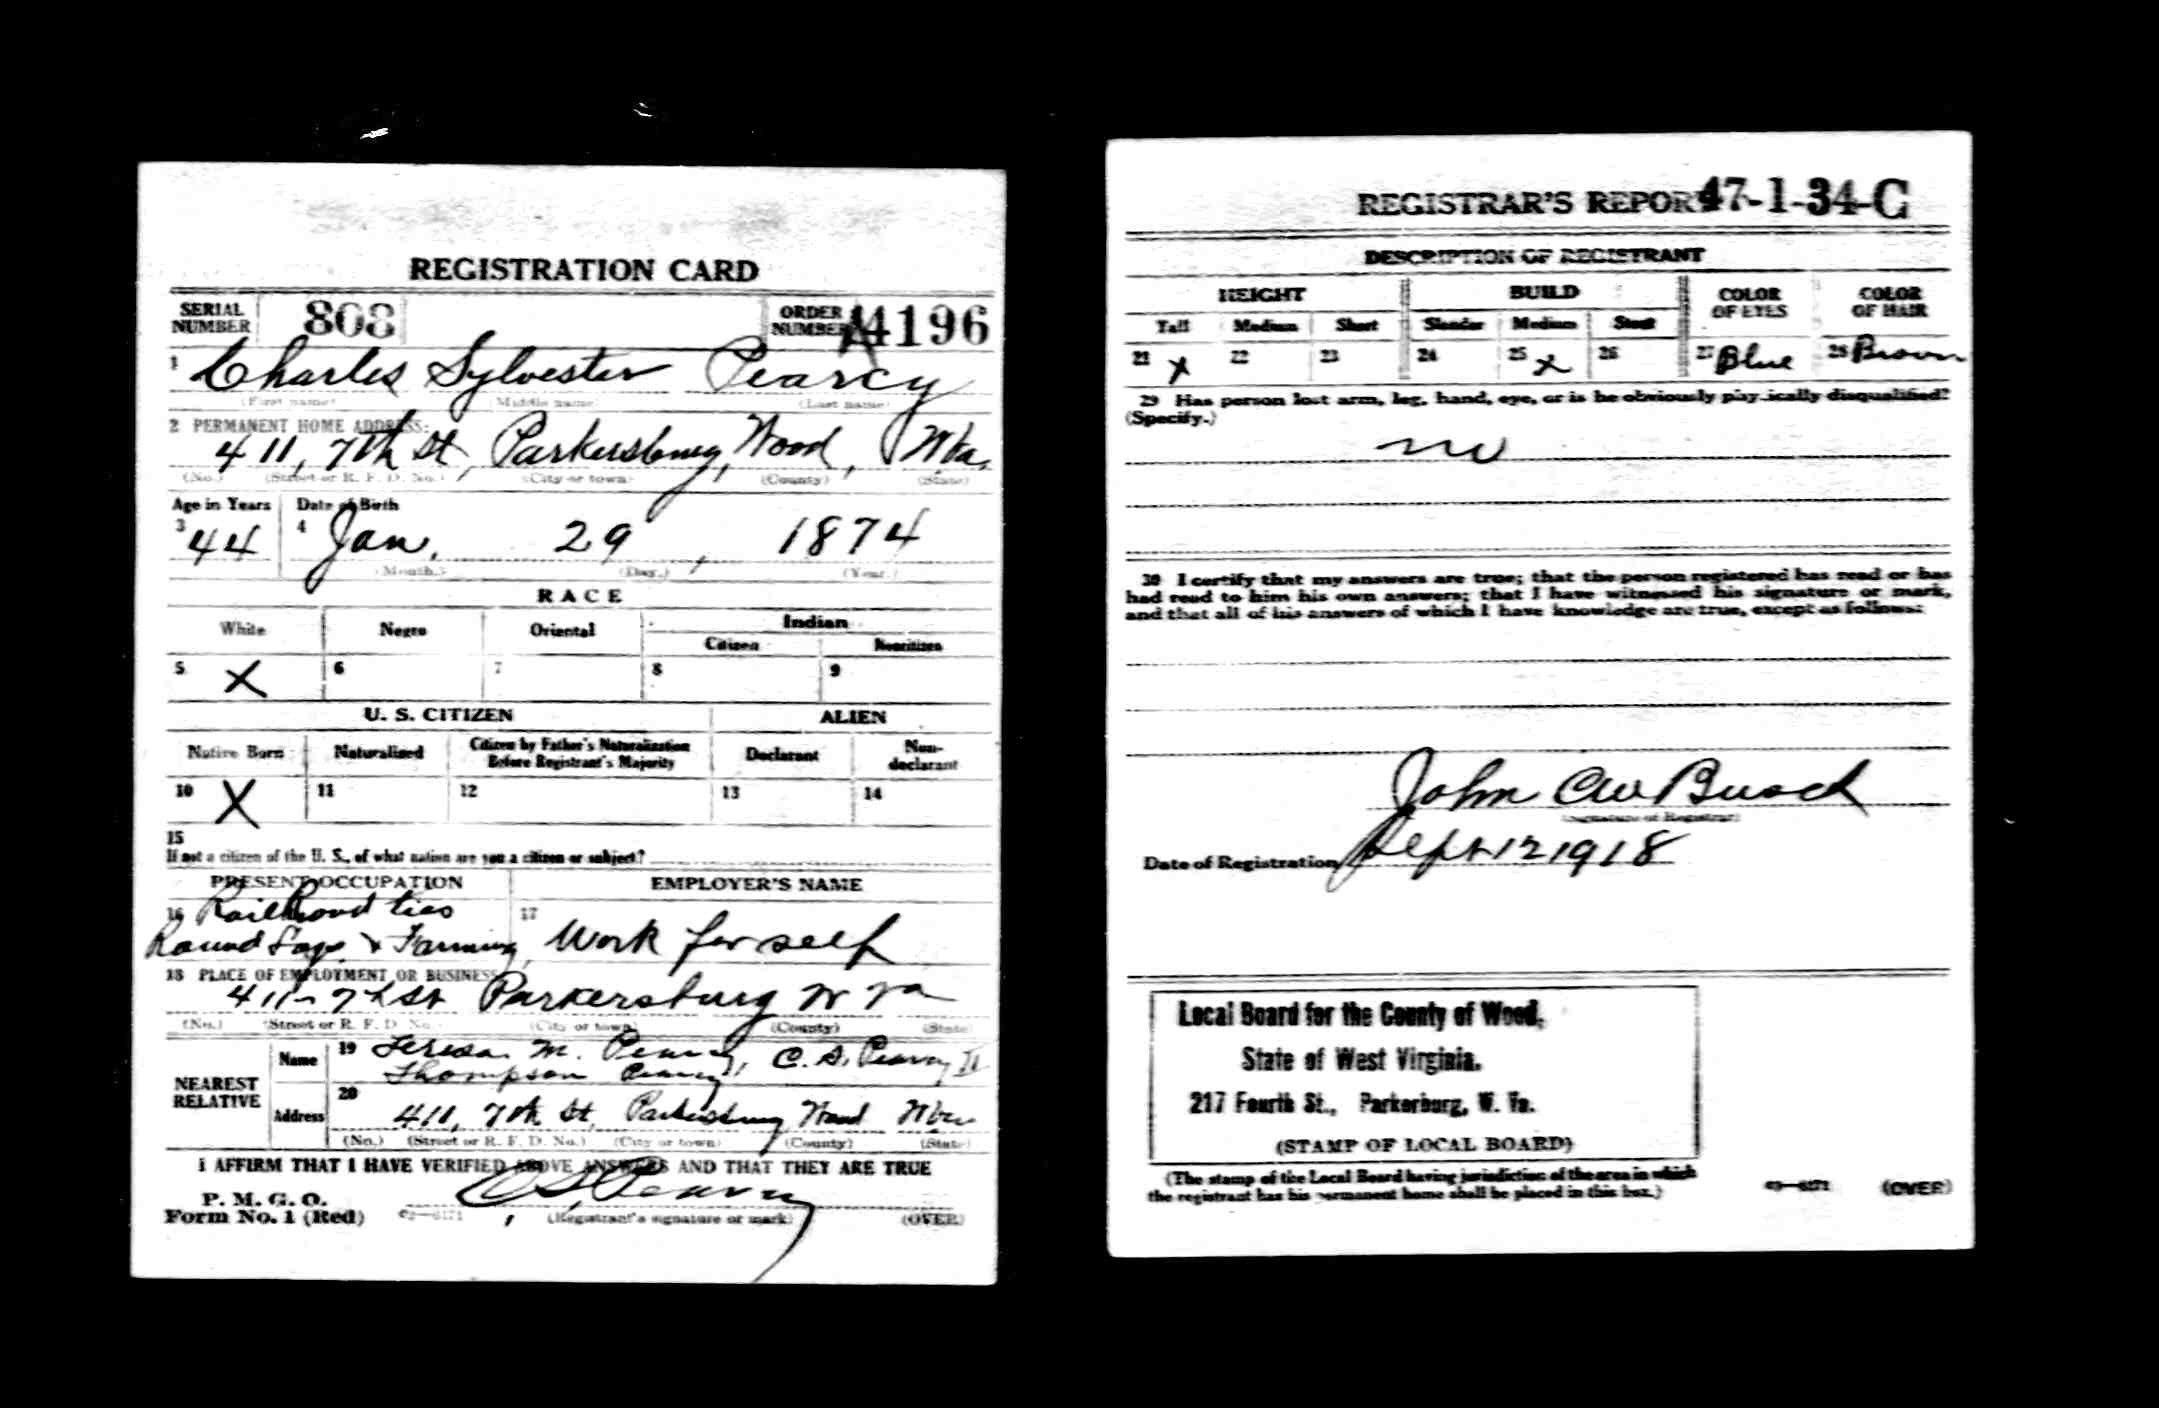 REGISTRATION CARD
SERIAL NUMBER 808 ORDER NUMBER A4196
1 Charles Sylvester Pearcy
(First name) (Middle name) (Last name)
2 PERMANENT HOME ADDRESS:
411, 7th St, Parkersburg, Wood, W Va,
(No.) (Street or R. F. D. No.) (City or town) (County) (State)
Age in Years Date of Birth
3 44 4 Jan. 29, 1874
(Month.) (Day.) (Year.)
RACE
White Negro Oriental Indian
Citizen Noncitizen
5 X 6 7 8 9
U. S. CITIZEN ALIEN
Native Born Naturalized Citizen by Father's Naturalization Before Registrant's Majority Declarant Non-declarant
10 X 11 12 13 14
15
If not a citizen of the U. S., of what nation are you a citizen or subject?
PRESENT OCCUPATION EMPLOYER'S NAME
16 Railroad ties
Round Logs & Farming, 17 Work for self
18 PLACE OF EMPLOYMENT OR BUSINESS
411 - 7th St Parkersburg W Va
(No.) (Street or R. F. D. No.) (City or town) (County) (State)
NEAREST RELATIVE
Name 19 Teresa M. Pearcy, C. S. Pearcy II
Thompson Pearcy
Address 20 411, 7th St, Parkersburg Wood W Va
(No.) (Street or R. F. D. No.) (City or town) (County) (State)
I AFFIRM THAT I HAVE VERIFIED ABOVE ANSWERS AND THAT THEY ARE TRUE
P. M. G. O.
Form No. 1 (Red) C S Pearcy
(Registrant's signature or mark) (OVER)
REGISTRAR'S REPORT 47-1-34-C
DESCRIPTION OF REGISTRANT
HEIGHT BUILD COLOR OF EYES COLOR OF HAIR
Tall Medium Short Slender Medium Stout
21 X 22 23 24 25 X 26 27 Blue 28 Brown
29 Has person lost arm, leg, hand, eye, or is he obviously physically disqualified?
(Specify.)
no
30 I certify that my answers are true; that the person registered has read or has
had read to him his own answers; that I have witnessed his signature or mark,
and that all of his answers of which I have knowledge are true, except as follows:
John Busch
(Signature of Registrar)
Date of Registration Sept 12 1918
Local Board for the County of Wood,
State of West Virginia.
217 Fourth St., Parkerburg, W. Va.
(STAMP OF LOCAL BOARD)
(The stamp of the Local Board having jurisdiction of the area in which
the registrant has his permanent home shall be placed in this box.)
(OVER)